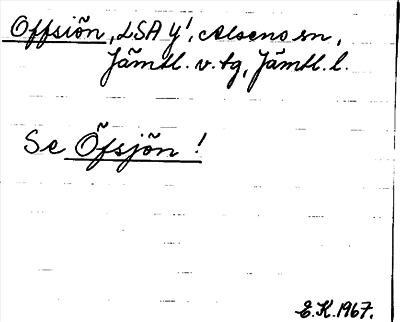 Offsiõn, LSA y!, Alseno sn,
Jämtl. v. tg, Jämtl. l.
Se Öfsjõn !
E.K.1967.